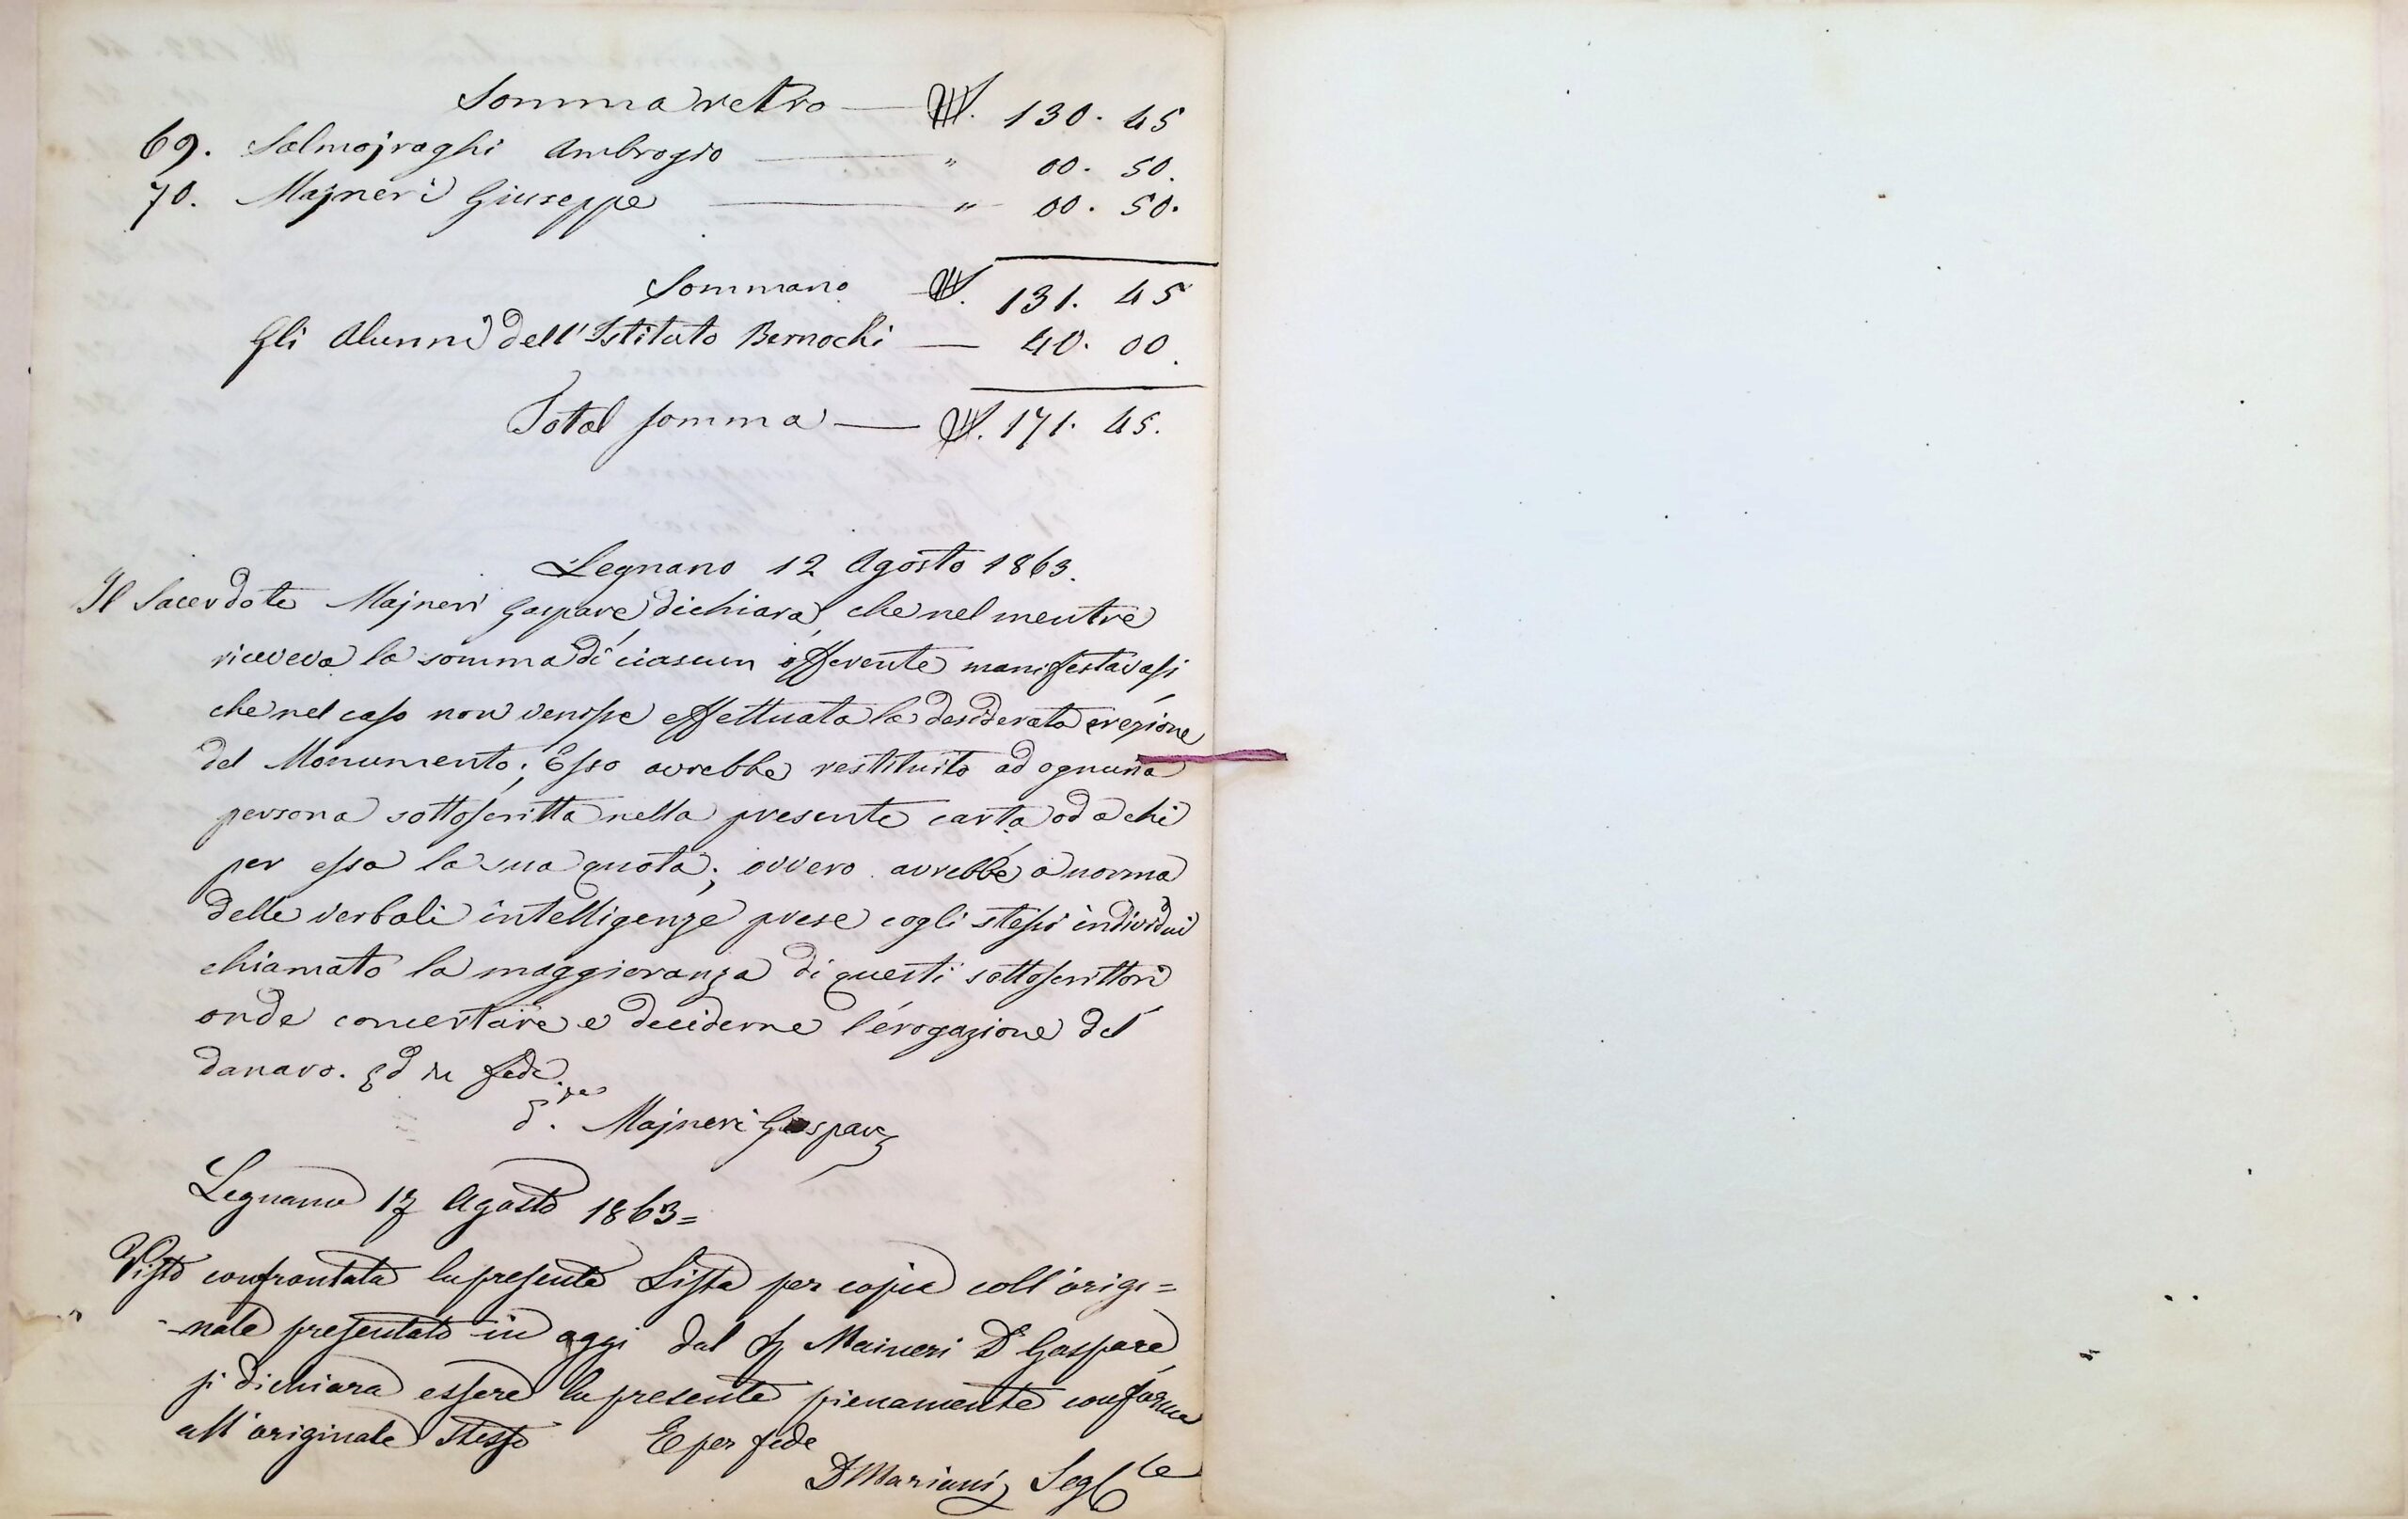 Somma retro — ₶. 130. 45
69. Salmojraghi Ambrogio — " 00. 50.
70. Majneri Giuseppe — " 00. 50.
Sommano ₶. 131. 45
Gli Alunni dell'Istituto Bernochi — 40. 00.
Total somma — ₶. 171. 45.
Legnano 12 Agosto 1863.
Il Sacerdote Majneri Gaspare dichiara, che nel mentre
riceveva la somma di ciascun offerente manifestavasi
che nel caso non venisse effettuata la desiderata erezione
del Monumento; Esso avrebbe restituito ad ognuna
persona sottoscritta nella presente carta od a chi
per essa la sua quota; ovvero avrebbe a norma
delle verbali intelligenze prese cogli stessi individui
chiamato la maggioranza di questi sottoscrittori
onde concertare e deciderne l'erogazione del
danaro. Ed in fede
Majneri Gaspare
Legnano 17 Agosto 1863=
Visto confrontata la presente Lista per copia coll'origi=
nale presentato in oggi dal Maineri Dn Gaspare,
si dichiara essere la presente pienamente conforme
all'originale stesso E per fede
D Mariani Seg